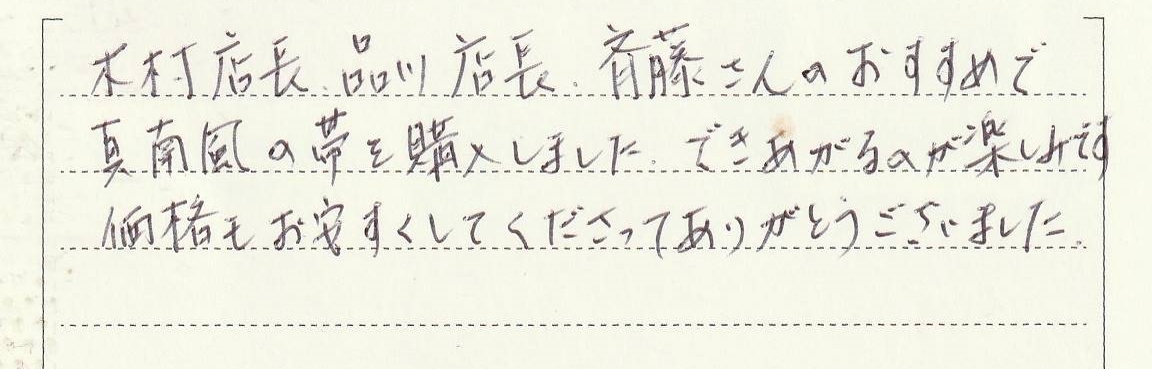 木村店長、品川店長、斉藤さんのおすすめで
真南風の帯を購入しました。できあがるのが楽しみです
価格もお安すくしてくださってありがとうございました。